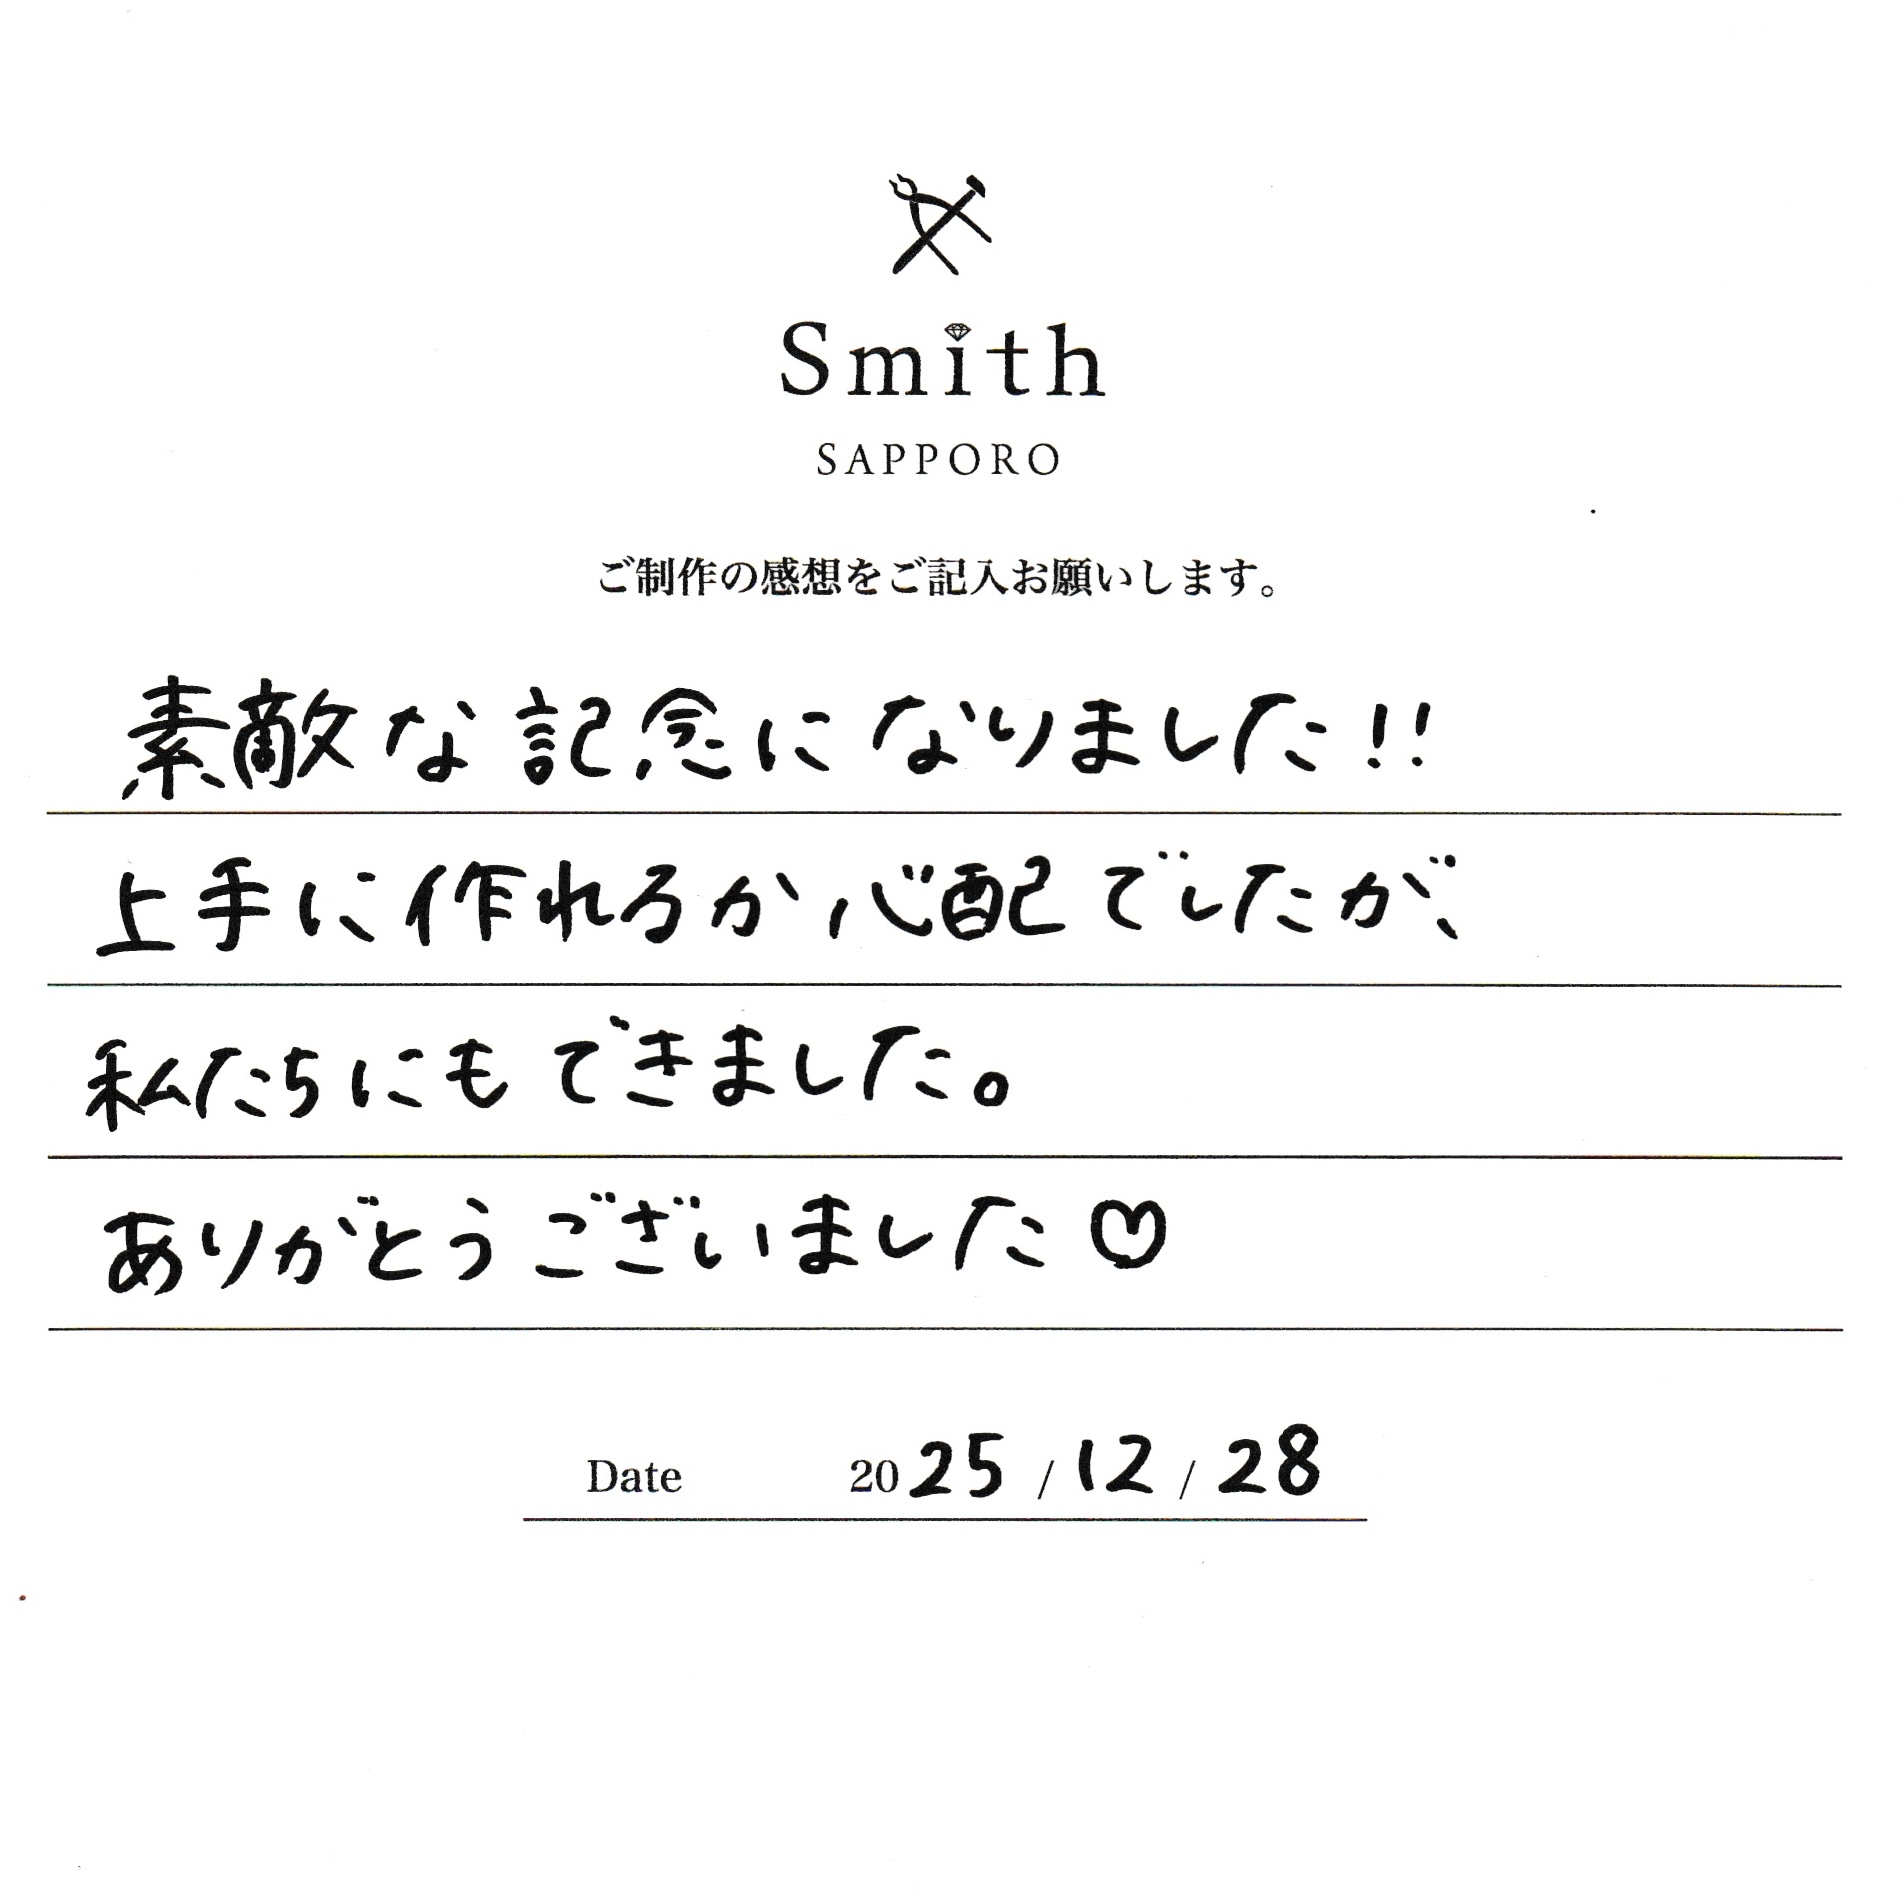 Smith
SAPPORO
ご制作の感想をご記入お願いします。
素敵な記念になりました!!
上手に作れるか心配でしたが、
私たちにもできました。
ありがとうございました♡
Date 2025/12/28